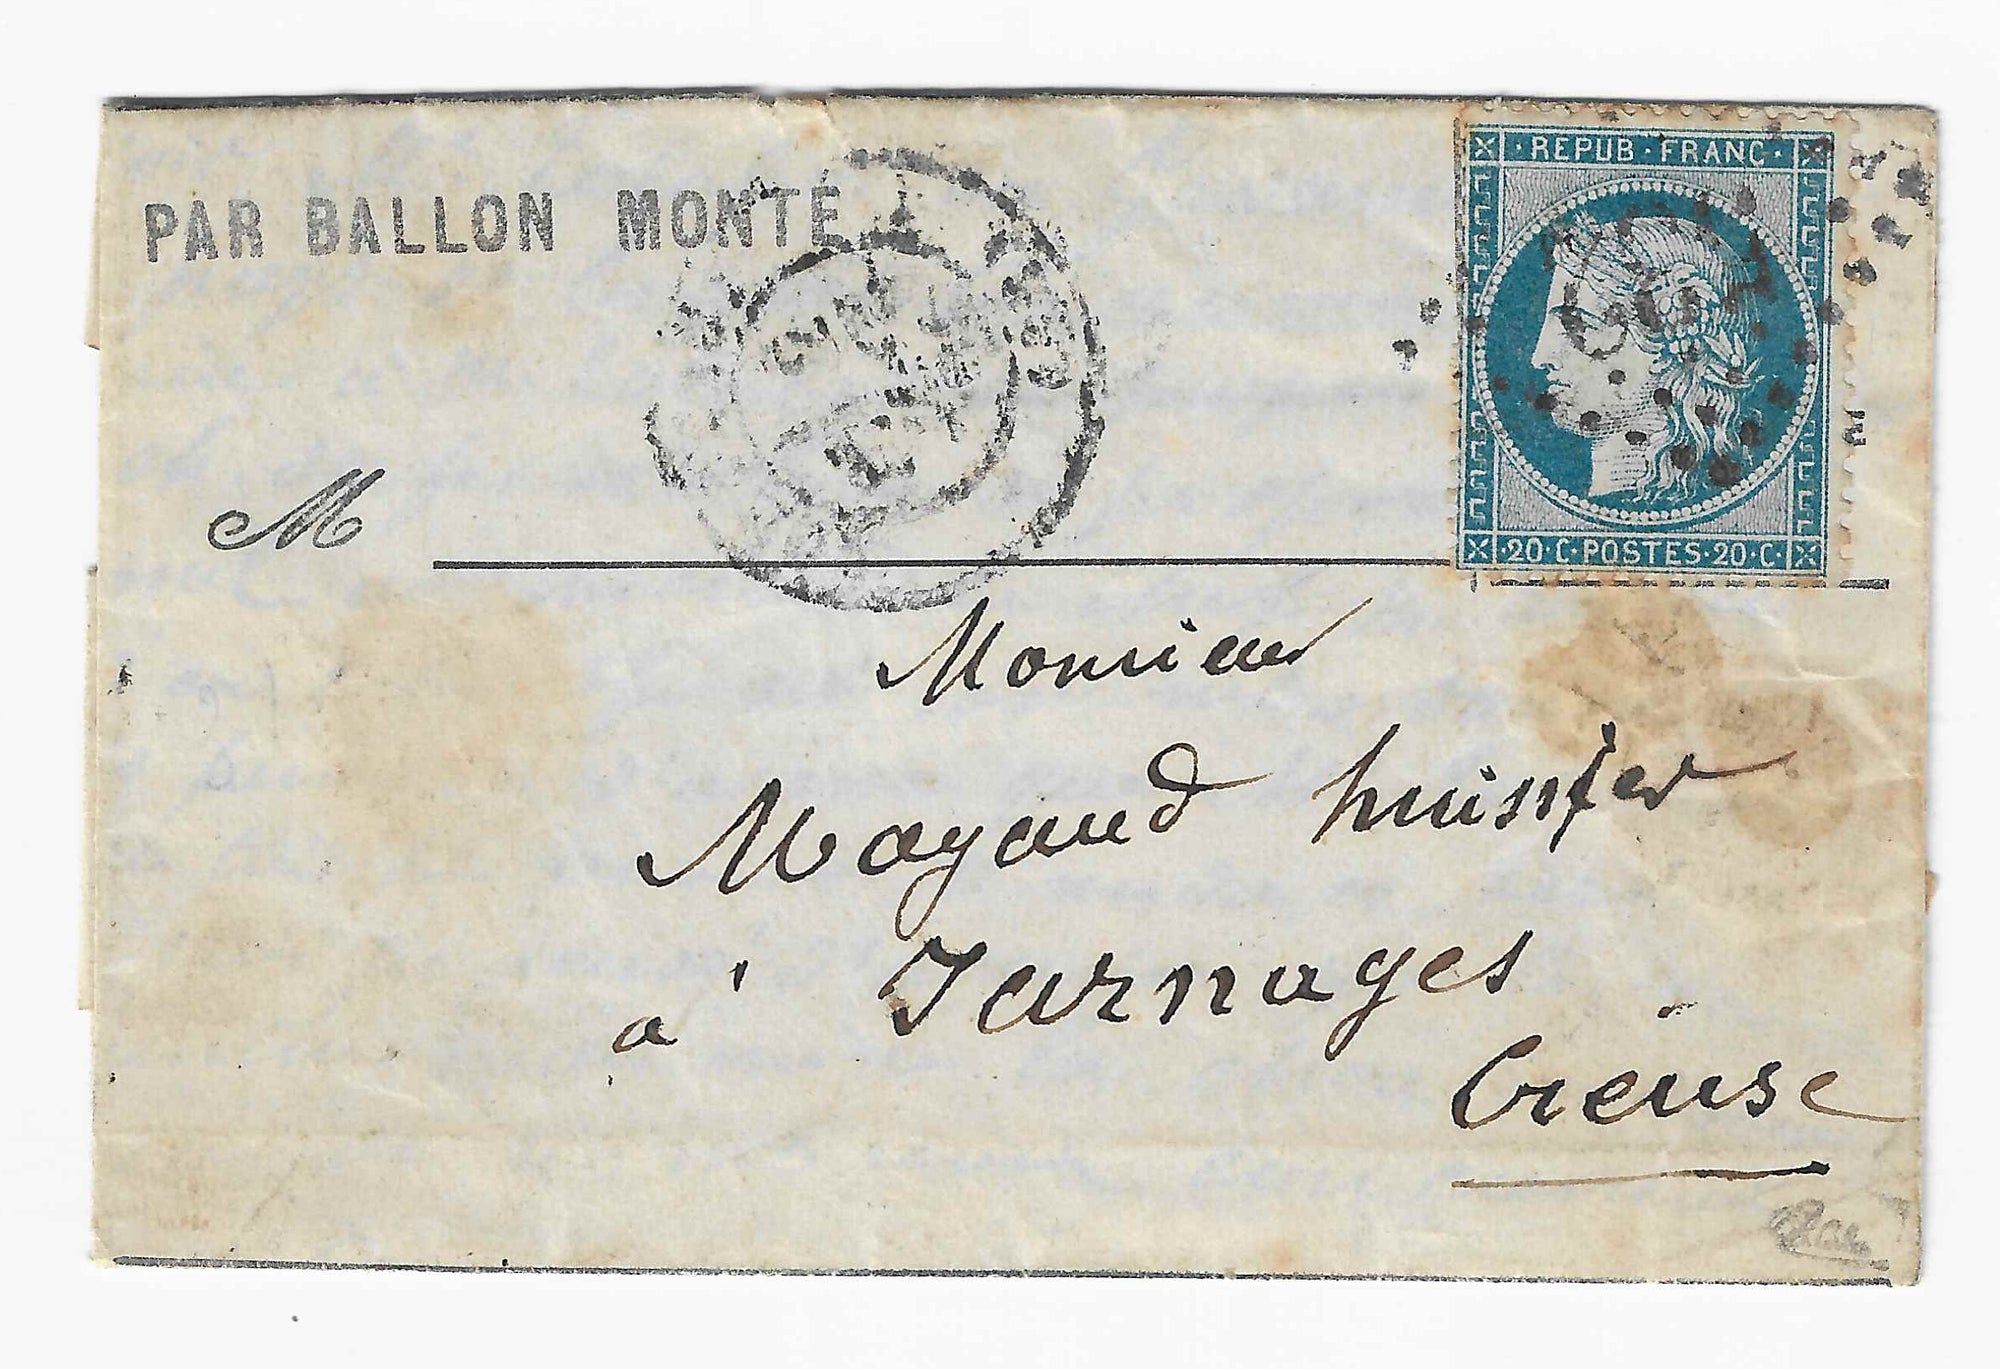 REPUB · FRANC ·
PAR BALLON MONTÉ
· 20 · C · POSTES · 20 · C ·
M
Monsieur
Mayaud huissier
à Jarnages
Creuse